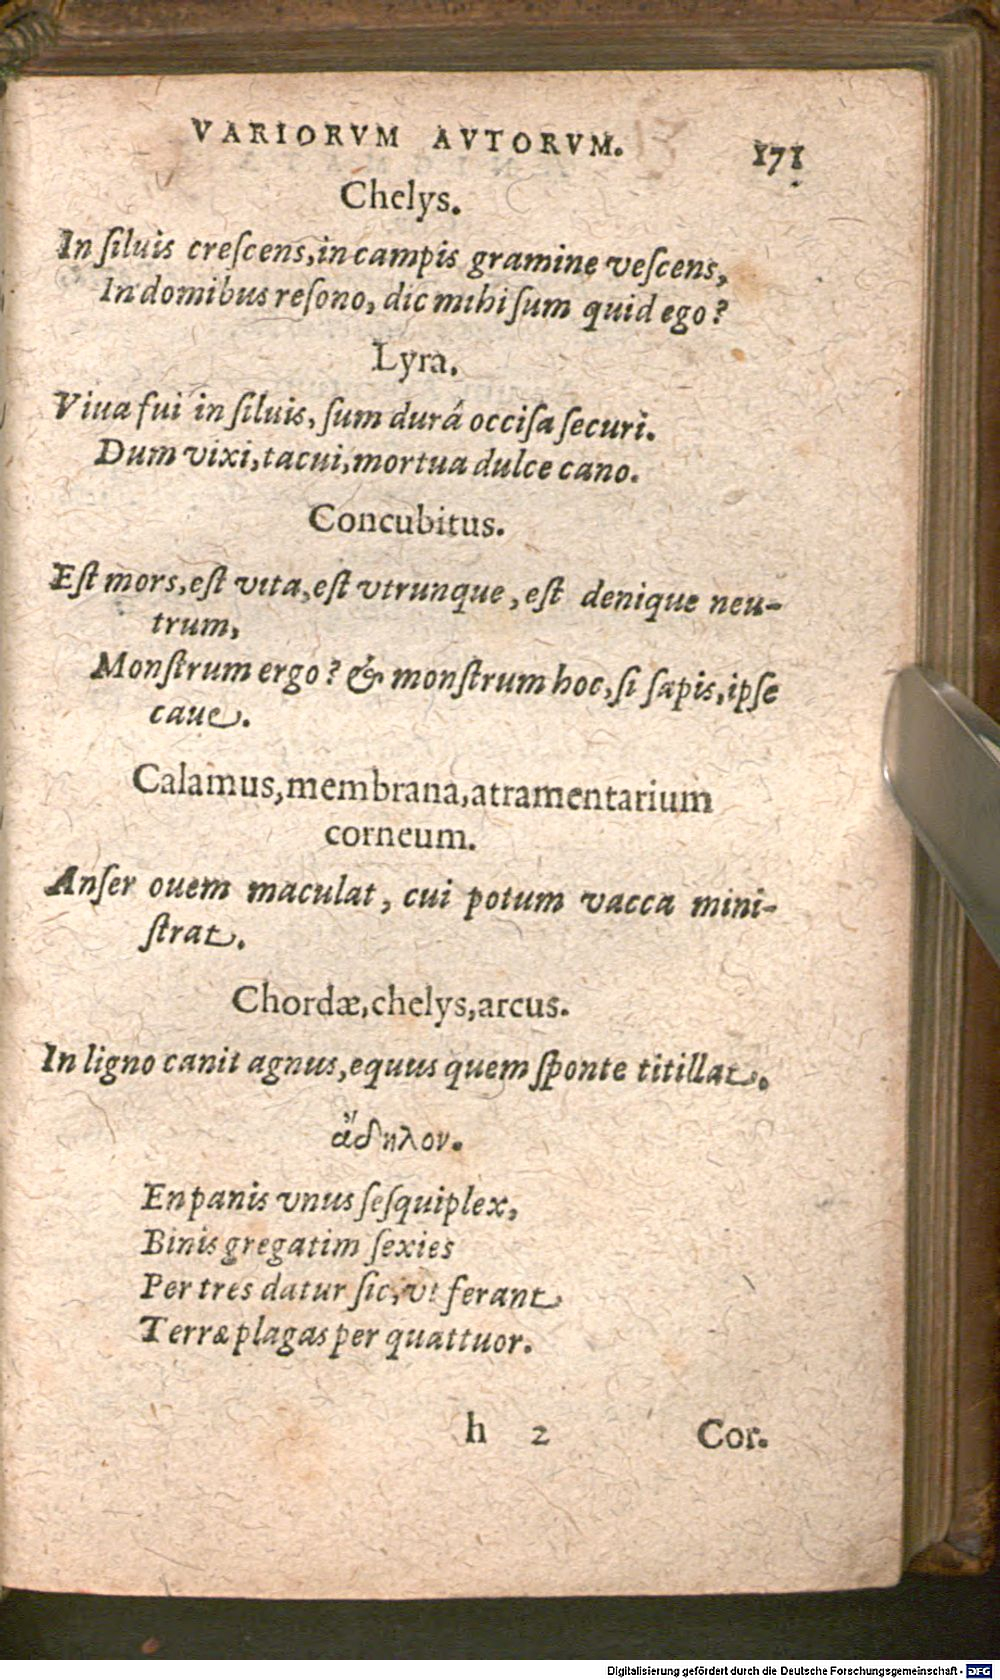 VARIORVM AVTORVM. 171
Chelys.
In ſiluis creſcens, in campis gramine veſcens,
In domibus reſono, dic mihi ſum quid ego?
Lyra.
Viua fui in ſiluis, ſum durá occiſa ſecuri.
Dum vixi, tacui, mortua dulce cano.
Concubitus.
Eſt mors, eſt vita, eſt vtrunque, eſt denique neu-
trum,
Monſtrum ergo? & monſtrum hoc, ſi ſapis, ipſe
caue.
Calamus, membrana, atramentarium
corneum.
Anſer ouem maculat, cui potum vacca mini-
ſtrat.
Chordæ, chelys, arcus.
In ligno canit agnus, equus quem ſponte titillat.
ἄδηλον.
En panis vnus ſeſquiplex,
Binis gregatim ſexies
Per tres datur ſic, vt ferant
Terræ plagas per quattuor.
h 2 Cor.
Digitalisierung gefördert durch die Deutsche Forschungsgemeinschaft - DFG